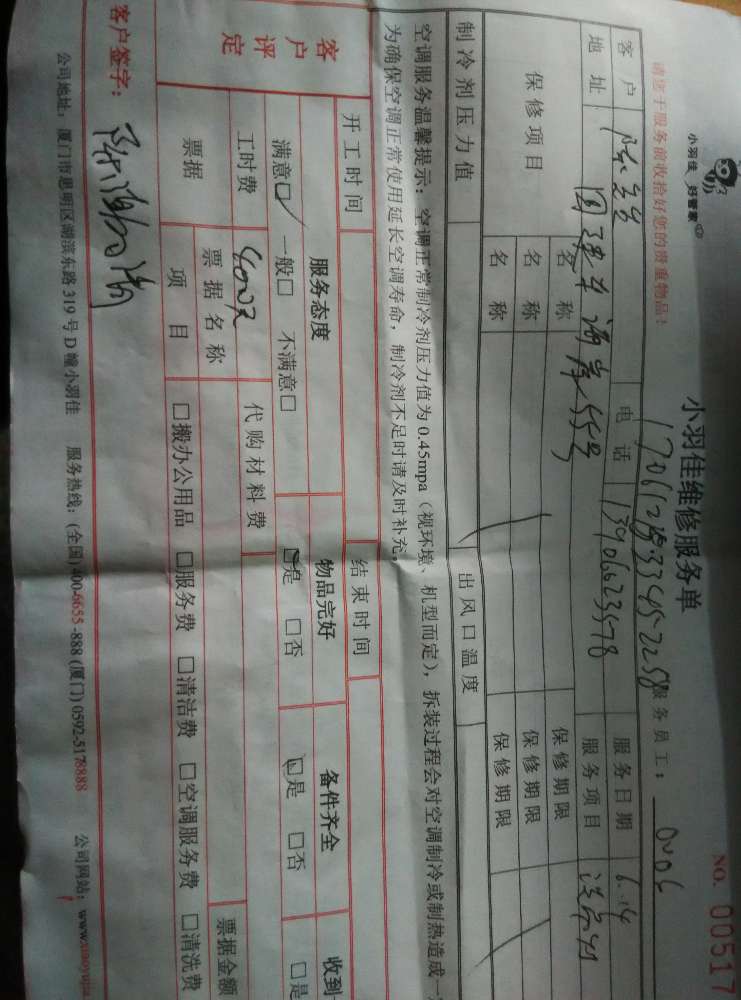 小羽佳 好管家
小羽佳维修服务单
NO. 00517
请您于服务前收拾好您的贵重物品！
服务员工：
客户 陈先生 电话 13906023578 服务日期 6.14
地址 服务项目
保修项目 名称 保修期限
名称 保修期限
名称 保修期限
制冷剂压力值 出风口温度
空调服务温馨提示：空调正常制冷剂压力值为0.45mpa（视环境、机型而定），拆装过程会对空调制冷或制热造成一
为确保空调正常使用延长空调寿命，制冷剂不足时请及时补充。
开工时间 结束时间
客户评定 服务态度 物品完好 备件齐全 收到
满意☑ 一般□ 不满意□ ☑是 □否 ☑是 □否 □是
工时费 代购材料费
票据 票据名称 票据金额
项目 □搬办公用品 □服务费 □清洁费 □空调服务费 □清洗费
客户签字：
公司地址：厦门市思明区湖滨东路319号D幢小羽佳 服务热线：(全国)400-6655-888(厦门)0592-5178888 公司网站：www.xiaoyujia